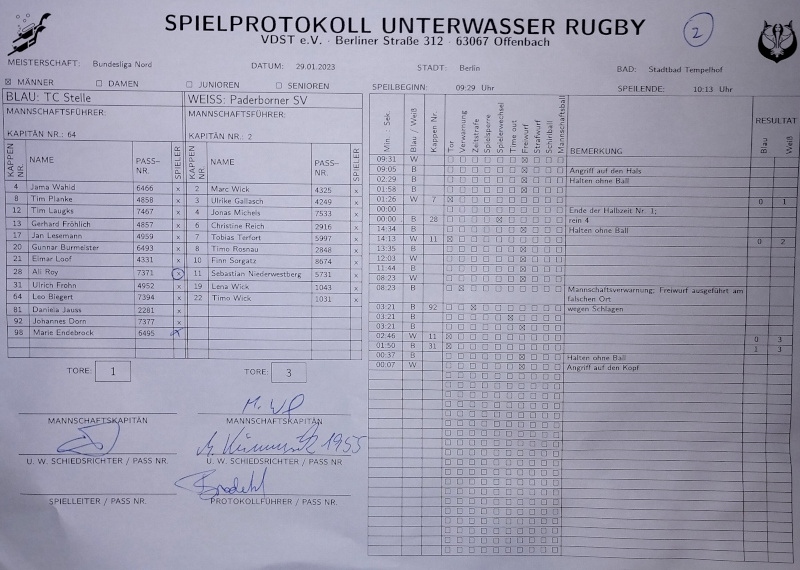 SPIELPROTOKOLL UNTERWASSER RUGBY
VDST e.V. · Berliner Straße 312 · 63067 Offenbach
2
MEISTERSCHAFT: Bundesliga Nord DATUM: 29.01.2023 STADT: Berlin BAD: Stadtbad Tempelhof
☒ MÄNNER ☐ DAMEN ☐ JUNIOREN ☐ SENIOREN SPIELBEGINN: 09:29 Uhr SPIELENDE: 10:13 Uhr
BLAU: TC Stelle WEISS: Paderborner SV
MANNSCHAFTSFÜHRER: MANNSCHAFTSFÜHRER:
KAPITÄN NR.: 64 KAPITÄN NR.: 2
KAPPEN NR. NAME PASS-NR. SPIELER KAPPEN NR. NAME PASS-NR. SPIELER
4 Jama Wahid 6466 x 2 Marc Wick 4325 x
8 Tim Planke 4858 x 3 Ulrike Gallasch 4249 x
12 Tim Laugks 7467 x 4 Jonas Michels 7533 x
13 Gerhard Fröhlich 4857 x 6 Christine Reich 2916 x
17 Jan Lesemann 4959 x 7 Tobias Terfort 5997 x
20 Gunnar Burmeister 6493 x 8 Timo Rosnau 2848 x
21 Elmar Loof 4331 x 10 Finn Sorgatz 8674 x
28 Ali Roy 7371 x 11 Sebastian Niederwestberg 5731 x
31 Ulrich Frohn 4952 x 19 Lena Wick 1043 x
64 Leo Biegert 7394 x 22 Timo Wick 1031 x
81 Daniela Jauss 2281 x
92 Johannes Dorn 7377 x
98 Marie Endebrock 6495 x
TORE: 1 TORE: 3
MANNSCHAFTSKAPITÄN MANNSCHAFTSKAPITÄN
1955
U. W. SCHIEDSRICHTER / PASS NR. U. W. SCHIEDSRICHTER / PASS NR.
SPIELLEITER / PASS NR. PROTOKOLLFÜHRER / PASS NR.
Min. : Sek. Blau / Weiß Kappen Nr. Tor Verwarnung Zeitstrafe Spielsperre Spielerwechsel Time out Freiwurf Strafwurf Schiriball Mannschaftsball BEMERKUNG RESULTAT Blau Weiß
09:31 W
09:05 B Angriff auf den Hals
02:29 B Halten ohne Ball
01:58 B
01:26 W 7 0 1
00:00 Ende der Halbzeit Nr. 1;
00:00 B 28 rein 4
14:34 B Halten ohne Ball
14:13 W 11 0 2
13:35 B
12:03 W
11:44 B
08:23 W
08:23 B Mannschaftsverwarnung; Freiwurf ausgeführt am falschen Ort
03:21 B 92 wegen Schlagen
03:21 B
03:21 B
02:46 W 11 0 3
01:50 B 31 1 3
00:37 B Halten ohne Ball
00:07 W Angriff auf den Kopf